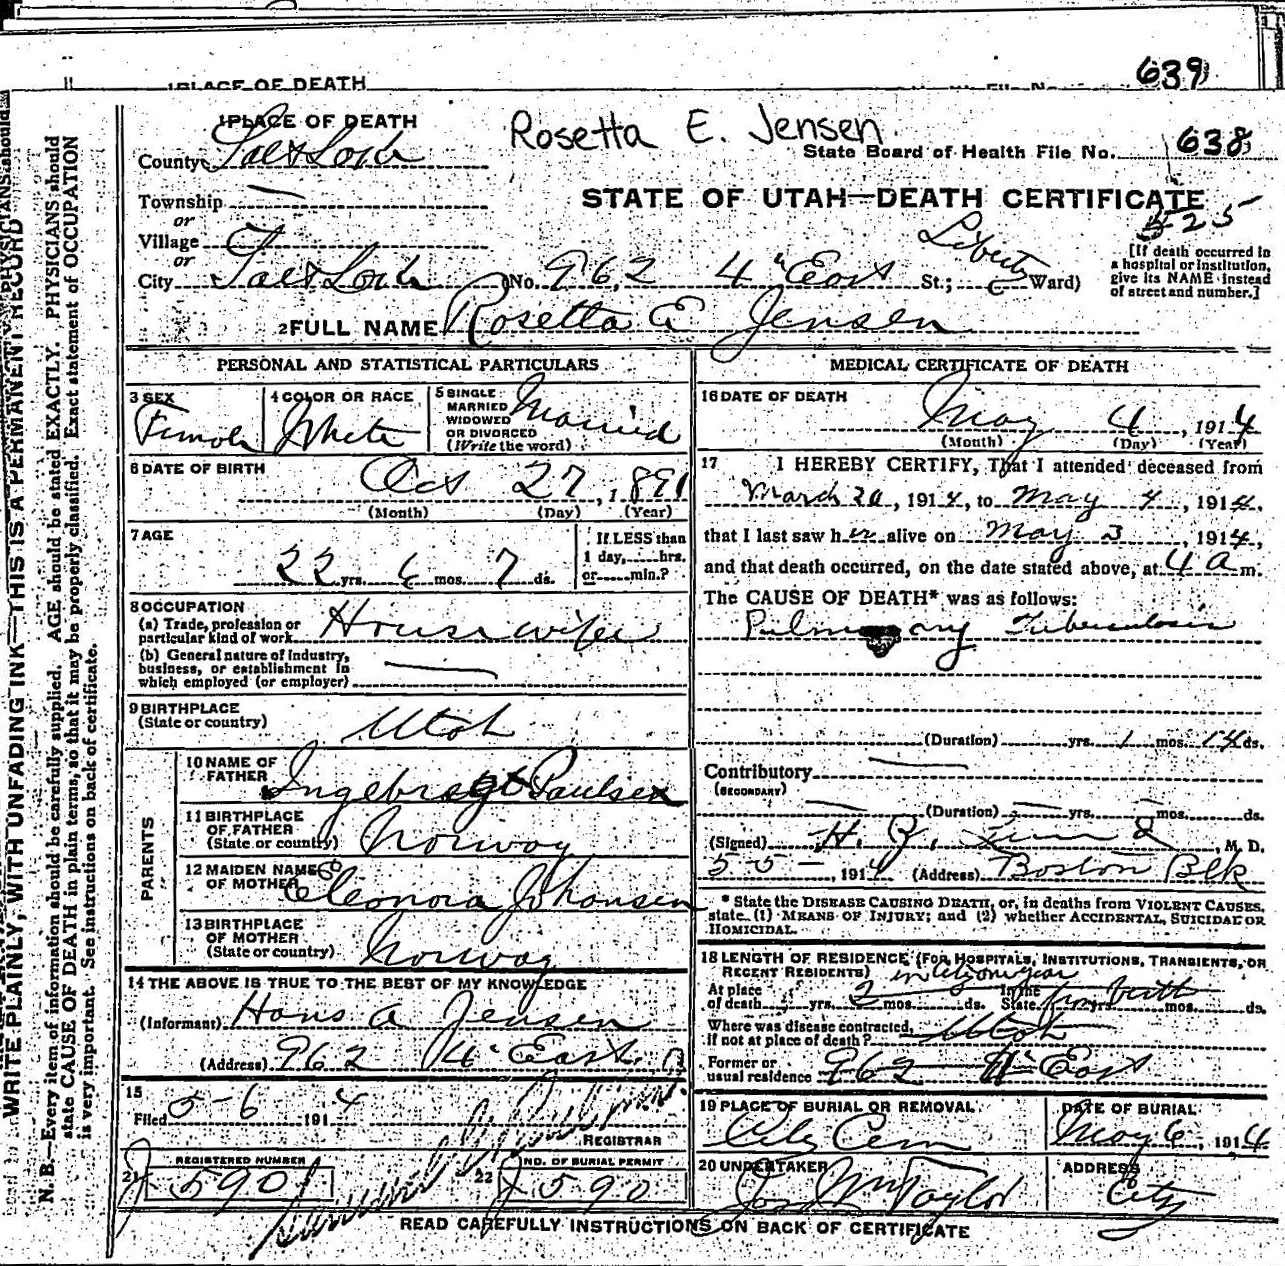 639
PLACE OF DEATH
File No.
1 PLACE OF DEATH
Rosetta E. Jensen
County Salt Lake
State Board of Health File No. 638
Township —
STATE OF UTAH—DEATH CERTIFICATE
or
525
Village
or
City Salt Lake (No. 962 4" East St.; Liberty Ward)
[If death occurred in a hospital or institution, give its NAME instead of street and number.]
2 FULL NAME Rosetta E Jensen
PERSONAL AND STATISTICAL PARTICULARS
3 SEX Female
4 COLOR OR RACE White
5 SINGLE MARRIED WIDOWED OR DIVORCED (Write the word) Married
6 DATE OF BIRTH Oct 27, 1891
(Month) (Day) (Year)
7 AGE 22 yrs. 6 mos. 7 ds.
If LESS than 1 day, hrs. or min.?
8 OCCUPATION
(a) Trade, profession or particular kind of work Housewife
(b) General nature of industry, business, or establishment in which employed (or employer) —
9 BIRTHPLACE (State or country) Utah
PARENTS
10 NAME OF FATHER Ingebragt Paulsen
11 BIRTHPLACE OF FATHER (State or country) Norway
12 MAIDEN NAME OF MOTHER Eleonora Johansen
13 BIRTHPLACE OF MOTHER (State or country) Norway
14 THE ABOVE IS TRUE TO THE BEST OF MY KNOWLEDGE
(Informant) Hans A Jensen
(Address) 962 4" East
15 Filed 5-6 1914
REGISTRAR
21 REGISTERED NUMBER J 590
22 NO. OF BURIAL PERMIT J 590
MEDICAL CERTIFICATE OF DEATH
16 DATE OF DEATH May 4, 1914
(Month) (Day) (Year)
17 I HEREBY CERTIFY, That I attended deceased from
March 20, 1914, to May 4, 1914,
that I last saw her alive on May 3, 1914,
and that death occurred, on the date stated above, at 4 a m.
The CAUSE OF DEATH* was as follows:
Pulmonary Tuberculosis
(Duration) yrs. 1 mos. 14 ds.
Contributory —
(SECONDARY)
(Duration) yrs. mos. ds.
(Signed) H. , M. D.
5-5-, 1914 (Address) Boston Blk
* State the DISEASE CAUSING DEATH, or, in deaths from VIOLENT CAUSES, state (1) MEANS OF INJURY; and (2) whether ACCIDENTAL, SUICIDAL OR HOMICIDAL.
18 LENGTH OF RESIDENCE (FOR HOSPITALS, INSTITUTIONS, TRANSIENTS, OR RECENT RESIDENTS)
At place of death yrs. 2 mos. ds. In the State from birth yrs. mos. ds.
Where was disease contracted, If not at place of death? Utah
Former or usual residence 962 4" East
19 PLACE OF BURIAL OR REMOVAL City Cem
DATE OF BURIAL May 6, 1914
20 UNDERTAKER Jos Wm Taylor
ADDRESS City
READ CAREFULLY INSTRUCTIONS ON BACK OF CERTIFICATE
WRITE PLAINLY, WITH UNFADING INK—THIS IS A PERMANENT RECORD
N. B.—Every item of information should be carefully supplied. AGE should be stated EXACTLY. PHYSICIANS should
state CAUSE OF DEATH in plain terms, so that it may be properly classified. Exact statement of OCCUPATION
is very important. See instructions on back of certificate.